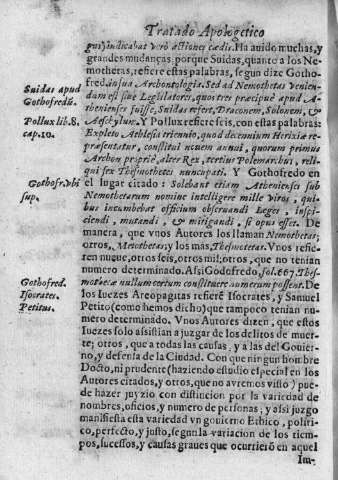 Tratado Apologetico
gui) indicabat verò actiones cædis. Ha auido muchas, y
grandes mudanças, porque Suidas, quanto a los Ne-
motheras, refiere estas palabras, segun dize Gotho-
fred. in sua Archontologia. Sed ad Nemothetas venien-
Suidas apud
Gothofredū.
dum est siue Legislatores, quos tres præcipuè apud A-
thenienses fuisse, Suidas refert, Draconem, Solonem, &
Pollux lib. 8.
cap. 10.
Æschylun. Y Pollux refiere seis, con estas palabras:
Expleto Athlesiæ triennio, quod decennium Herixiæ re-
præsentatur, constitui nouem annui, quorum primus
Archon propriè, alter Rex, tertius Polemarchus, reli-
qui sex Thesmothetes nuncupati. Y Gothofredo en
Gothofr. vbi
sup.
el lugar citado: Solebant etiam Athenienses sub
Nemothetarum nomine intelligere mille viros, qui-
bus incumbebat officium obseruandi Leges, inspi-
ciendi, mutandi, & mitigandi, si opus esset. De
manera, que vnos Autores los llaman Nemothetas;
otros, Mesothetas; y los mas, Thesmotetas. Vnos refie-
ren nueue, otros seis, otros mil; otros, que no tenian
numero determinado. Assi Godofredo, fol. 667. Thes-
Gothofred.
Isocrates.
Petitus.
motetæ nullum certum constituere numerum possent. De
los Iuezes Areopagitas refiere Isocrates, y Samuel
Petito (como hemos dicho) que tampoco tenian nu-
mero determinado. Vnos Autores dizen, que estos
Iuezes solo assistian a juzgar de los delitos de muer-
te; otros, que a todas las causas, y a las del Gouier-
no, y defensa de la Ciudad. Con que ningun hombre
Docto, ni prudente (haziendo estudio especial en los
Autores citados, y otros, que no avremos visto) pue-
de hazer juyzio con distincion por la variedad de
nombres, oficios, y numero de personas; y assi juzgo
manifiesta esta variedad vn gouierno Ethico, politi-
co, perfecto, y justo, segun la variacion de los tiem-
pos, sucessos, y causas graues que ocurrierō en aquel
Im-